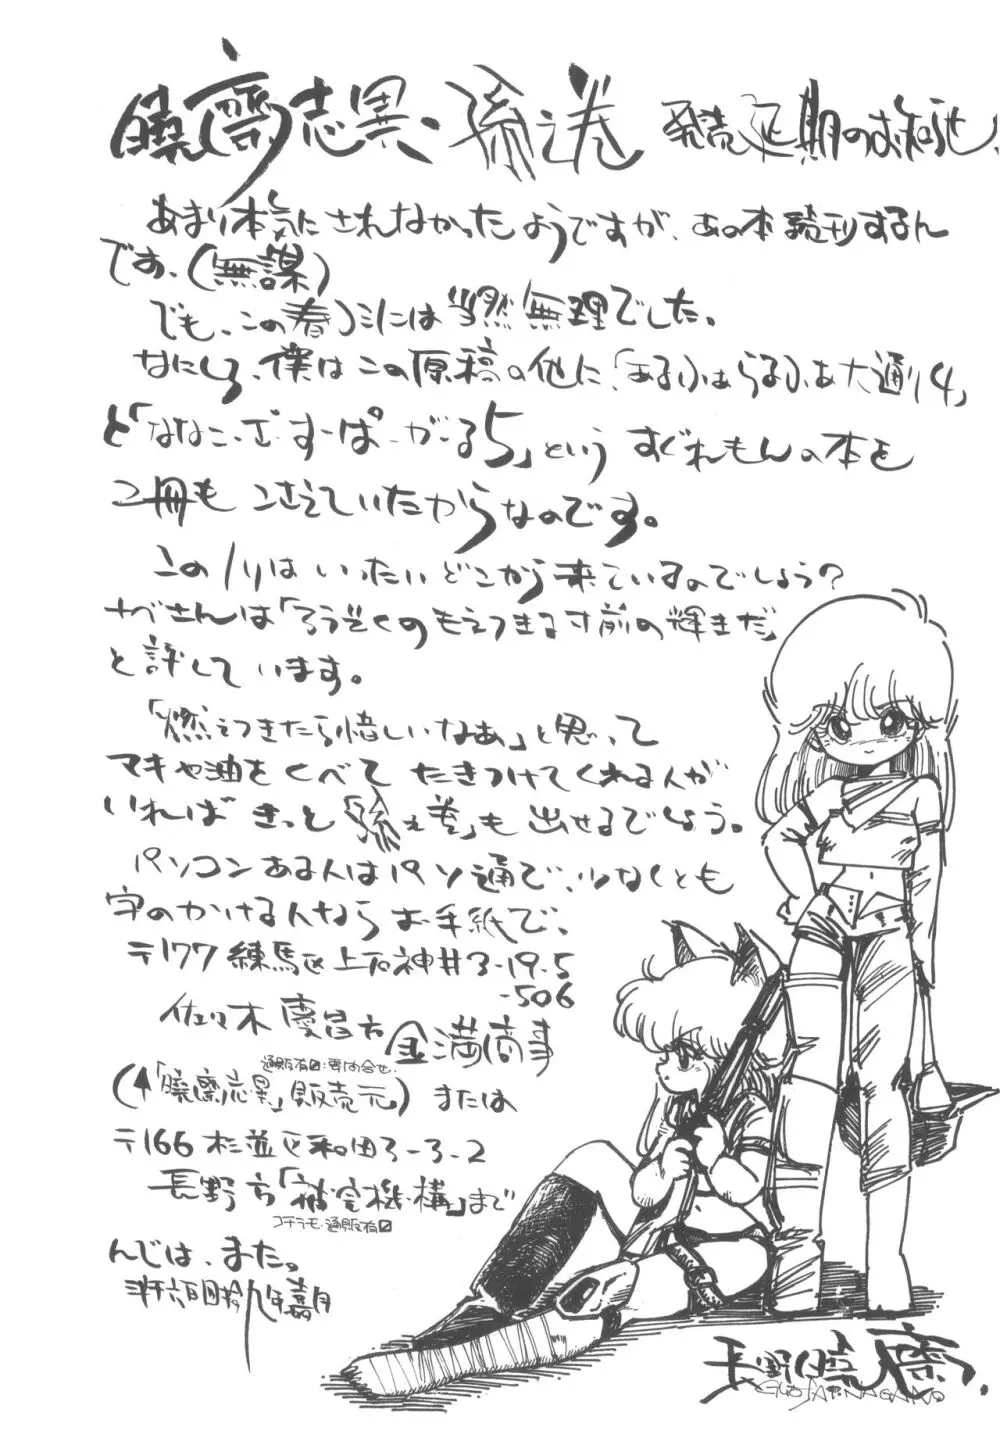 曉齋志異、孫之巻 発売延期のお知らせ!
あまり本気にされなかったようですが、あの本続刊するん
です、(無謀)
でも、この春コミには当然無理でした。
なにしろ、僕はこの原稿の他に、「あるふぁらるふぁ大通り4」
と「ななこ・ざ・すーぱーがーる5」という すぐれもんの本を
2冊も こさえていたからなのです。
このノリは いったい どこから来ているのでしょう?
ナベさんは「ろうそくのもえつきる寸前の輝きだ」
と評しています。
「燃えつきたら惜しいなあ」と思って
マキや油をくべて たきつけてくれる人が
いれば きっと「孫之巻」も 出せるでしょう。
パソコンある人はパソ通で、少なくとも
字のかける人なら お手紙で、
〒177 練馬区上石神井3-19-5
-506
佐々木 慶昌方 金満商事
通販有口:要問合せ.
(↑「曉齋志異」販売元) または
〒166 杉並区和田3-3-2
長野方 機構」まで
コチラも通販有口
んじは、また。
弐千六百四拾九年嘉月
長野曉齋.
GYOSAI.NAGANO